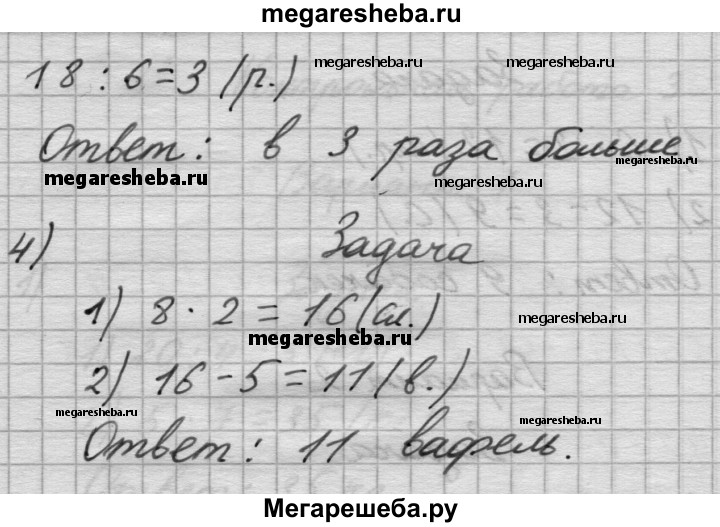 megaresheba.ru
18 : 6 = 3 (р.) megaresheba.ru megaresheba.ru
Ответ: в 3 раза больше.
megaresheba.ru megaresheba.ru megaresheba.ru
4) Задача
1) 8 · 2 = 16 (сл.) megaresheba.ru
megaresheba.ru
2) 16 - 5 = 11 (в.)
megaresheba.ru megaresheba.ru
Ответ: 11 вафель.
megaresheba.ru
Мегарешеба.ру